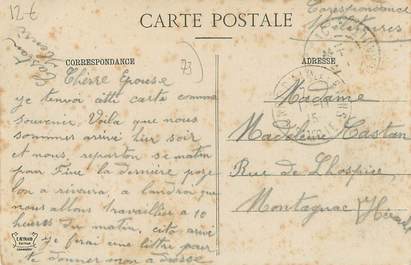 12-€
CARTE POSTALE
Correspondance
Militaires
CORRESPONDANCE
ADRESSE
73
Chère Epouse
je tenvoi cette carte comme
souvenir. Voila que nous
sommes arrivé hier soir
et nous reparton se matin
pour la dernière pose
a landroi que
nous allons travailler a 10
heures du matin, cito arivé
je ferai une lettre pour
te donner mon adresse
Madame
Madeleine Castan
Rue de Lhospice
Montagnac Herault